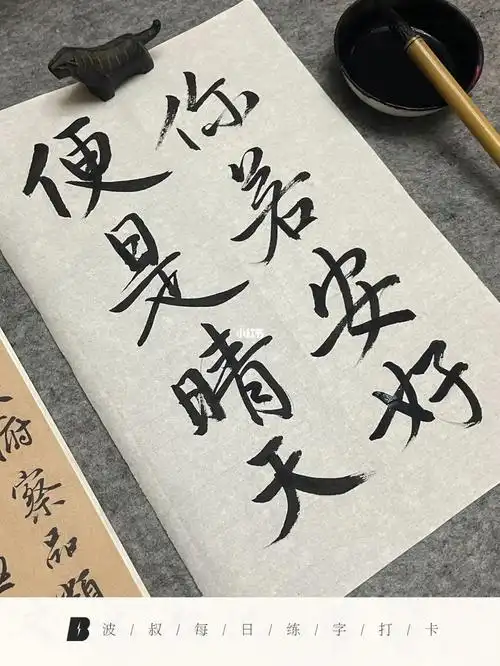 你若安好
便是晴天
府察品
小红书
B波/叔/每/日/练/字/打/卡